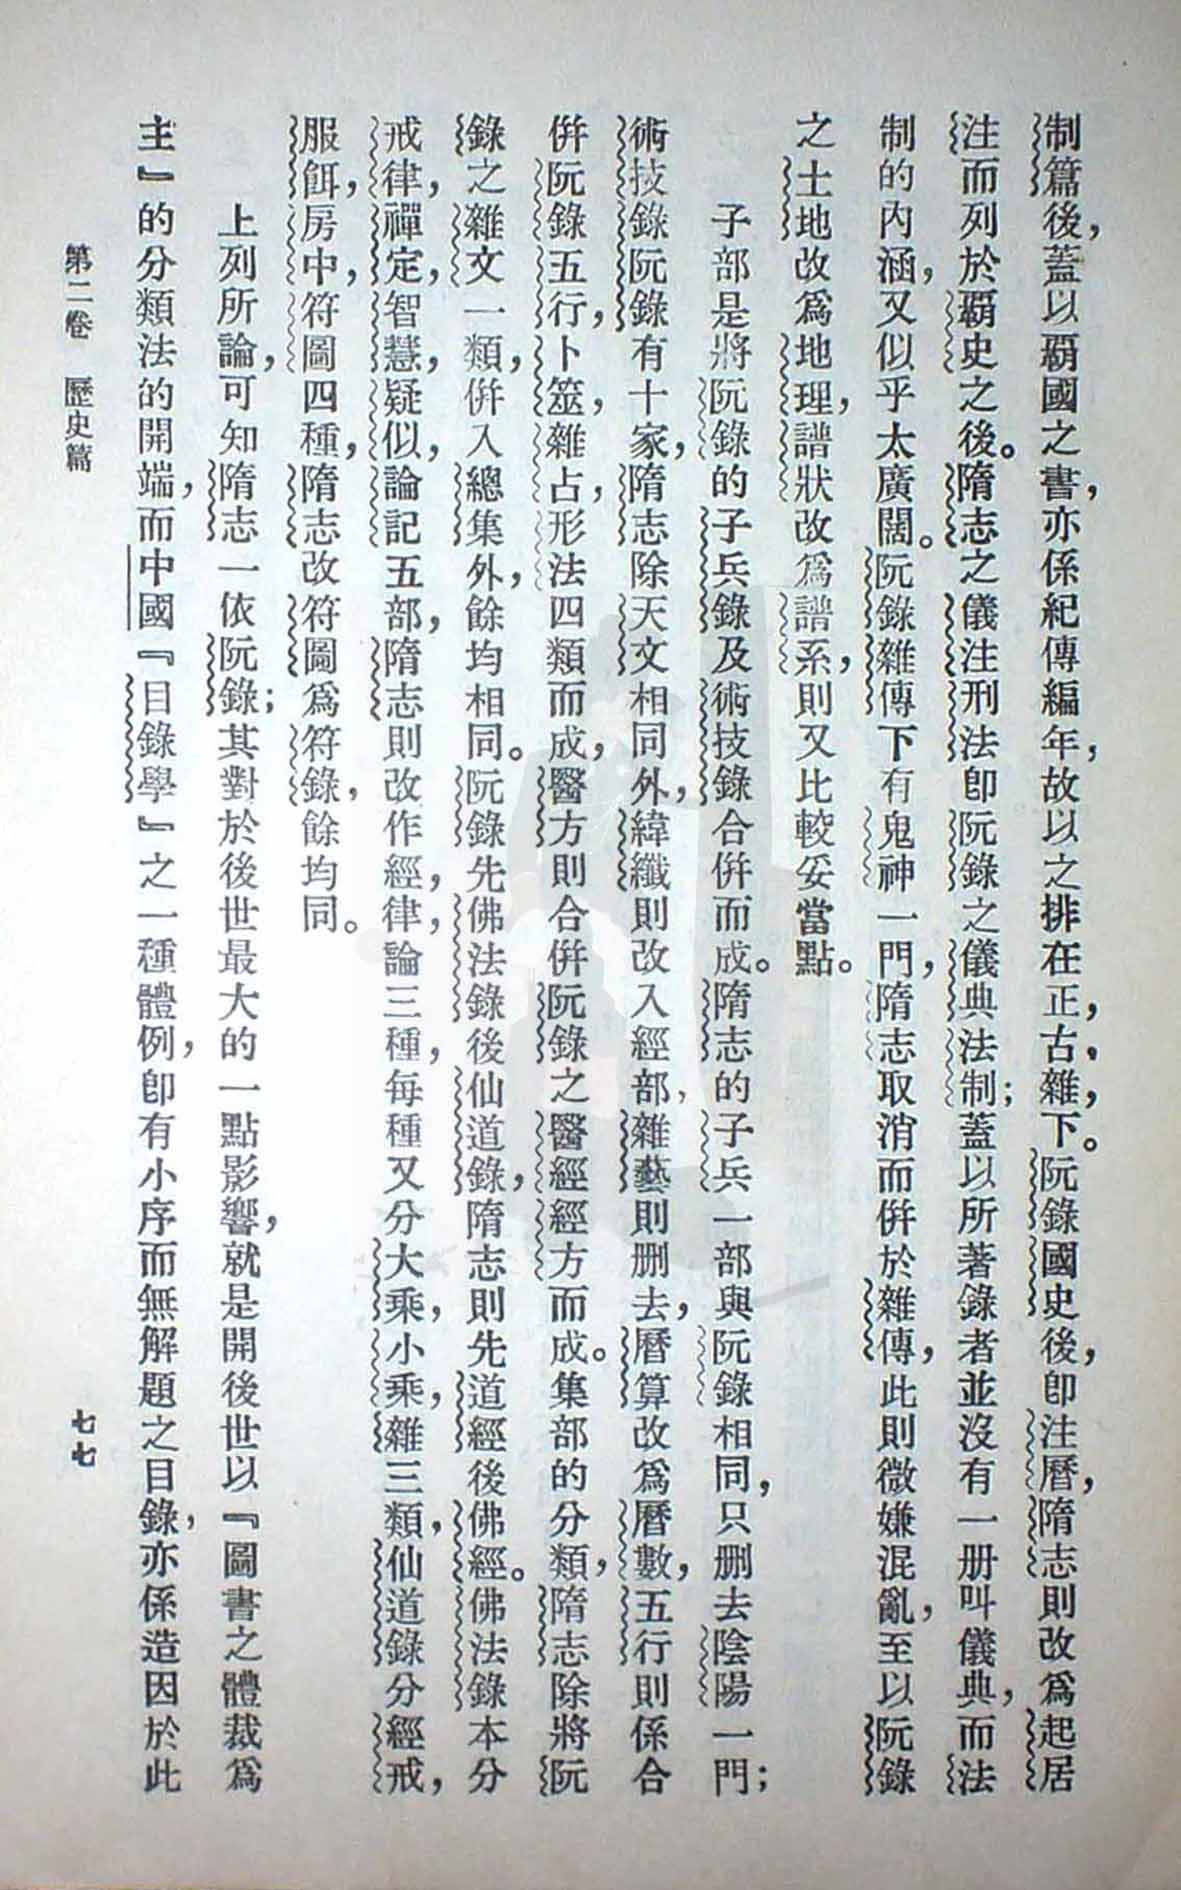 制篇後，蓋以覇國之書，亦係紀傳編年，故以之排在正，古，雜，下。阮錄國史後，卽注曆，隋志則改爲起居
注而列於覇史之後。隋志之儀注刑法卽阮錄之儀典法制；蓋以所著錄者並沒有一册叫儀典，而法
制的內涵，又似乎太廣闊。阮錄雜傳下有鬼神一門，隋志取消而併於雜傳，此則微嫌混亂，至以阮錄
之土地改爲地理，譜狀改爲譜系，則又比較妥當點。
子部是將阮錄的子兵錄及術技錄合併而成。隋志的子兵一部與阮錄相同，只删去陰陽一門；
術技錄阮錄有十家，隋志除天文相同外，緯纖則改入經部，雜藝則删去，曆算改爲曆數，五行則係合
併阮錄五行，卜筮，雜占，形法四類而成，醫方則合併阮錄之醫經經方而成。集部的分類，隋志除將阮
錄之雜文一類，併入總集外，餘均相同。阮錄先佛法錄後仙道錄，隋志則先道經後佛經。佛法錄本分
戒律，禪定，智慧，疑似，論記五部，隋志則改作經，律，論三種，每種又分大乘，小乘，雜三類，仙道錄分經戒，
服餌，房中，符圖四種，隋志改符圖爲符錄，餘均同。
上列所論，可知隋志一依阮錄；其對於後世最大的一點影響，就是開後世以『圖書之體裁爲
主』的分類法的開端，而中國『目錄學』之一種體例，卽有小序而無解題之目錄，亦係造因於此
第二卷　歷史篇
七七